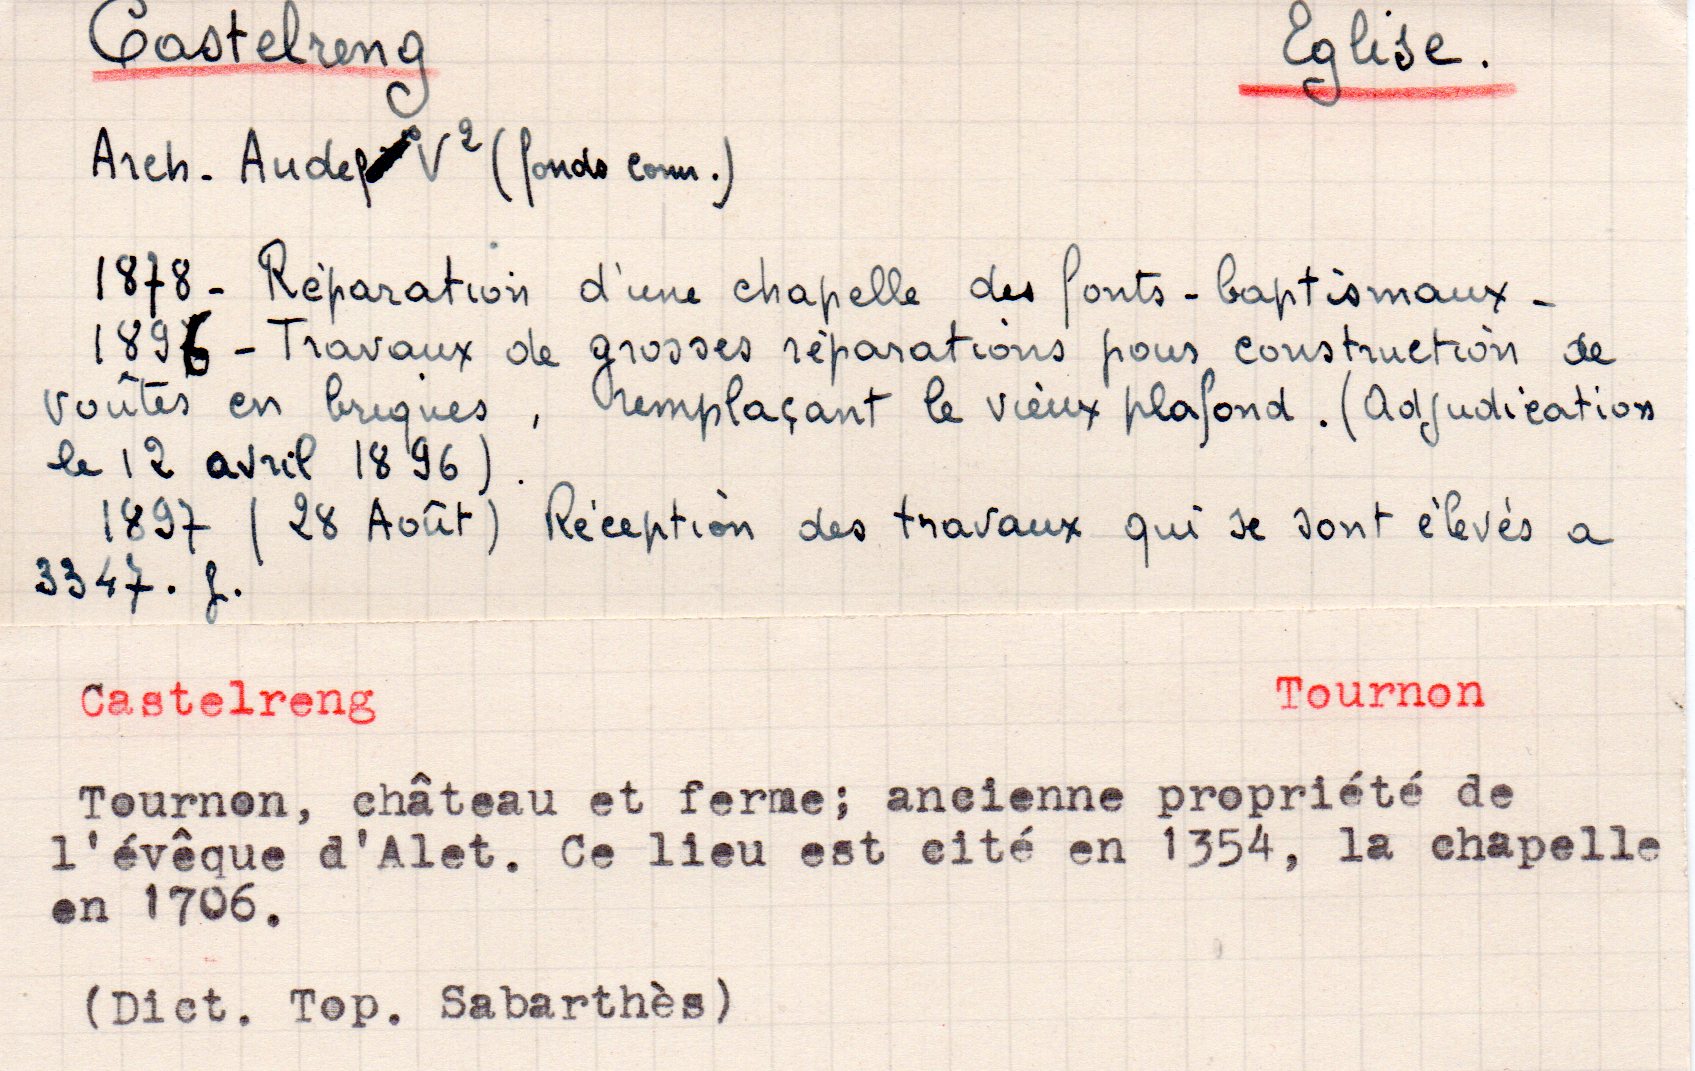 Castelreng Eglise.
Arch. Aude V² (fonds com.)
1878 - Réparation d'une chapelle des fonts-baptismaux -
1896 - Travaux de grosses réparations pour construction de
voûtes en briques, remplaçant le vieux plafond. (Adjudication
le 12 avril 1896).
1897 (28 Août) Réception des travaux qui se sont élevés a
3347. f.
Castelreng Tournon
Tournon, château et ferme; ancienne propriété de
l'évêque d'Alet. Ce lieu est cité en 1354, la chapelle
en 1706.
(Dict. Top. Sabarthès)